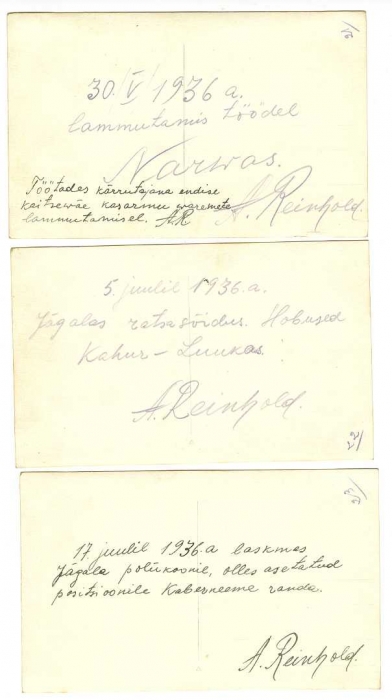 30. V 1936 a.
lammutamis töödel
Narwas.
Töötades kärrutajana endise
kaitsewäe kasarmu waremete
lammutamisel. A.R
A. Reinhold.
5. juulil 1936.a.
Jägalas ratsasõidus. Hobused
Kahur - Luukas.
A. Reinhold.
22/
17. juulil 1936.a laskmas
Jägala polükoonil, olles asetatud
positsioonile Kaberneeme randa.
A. Reinhold.